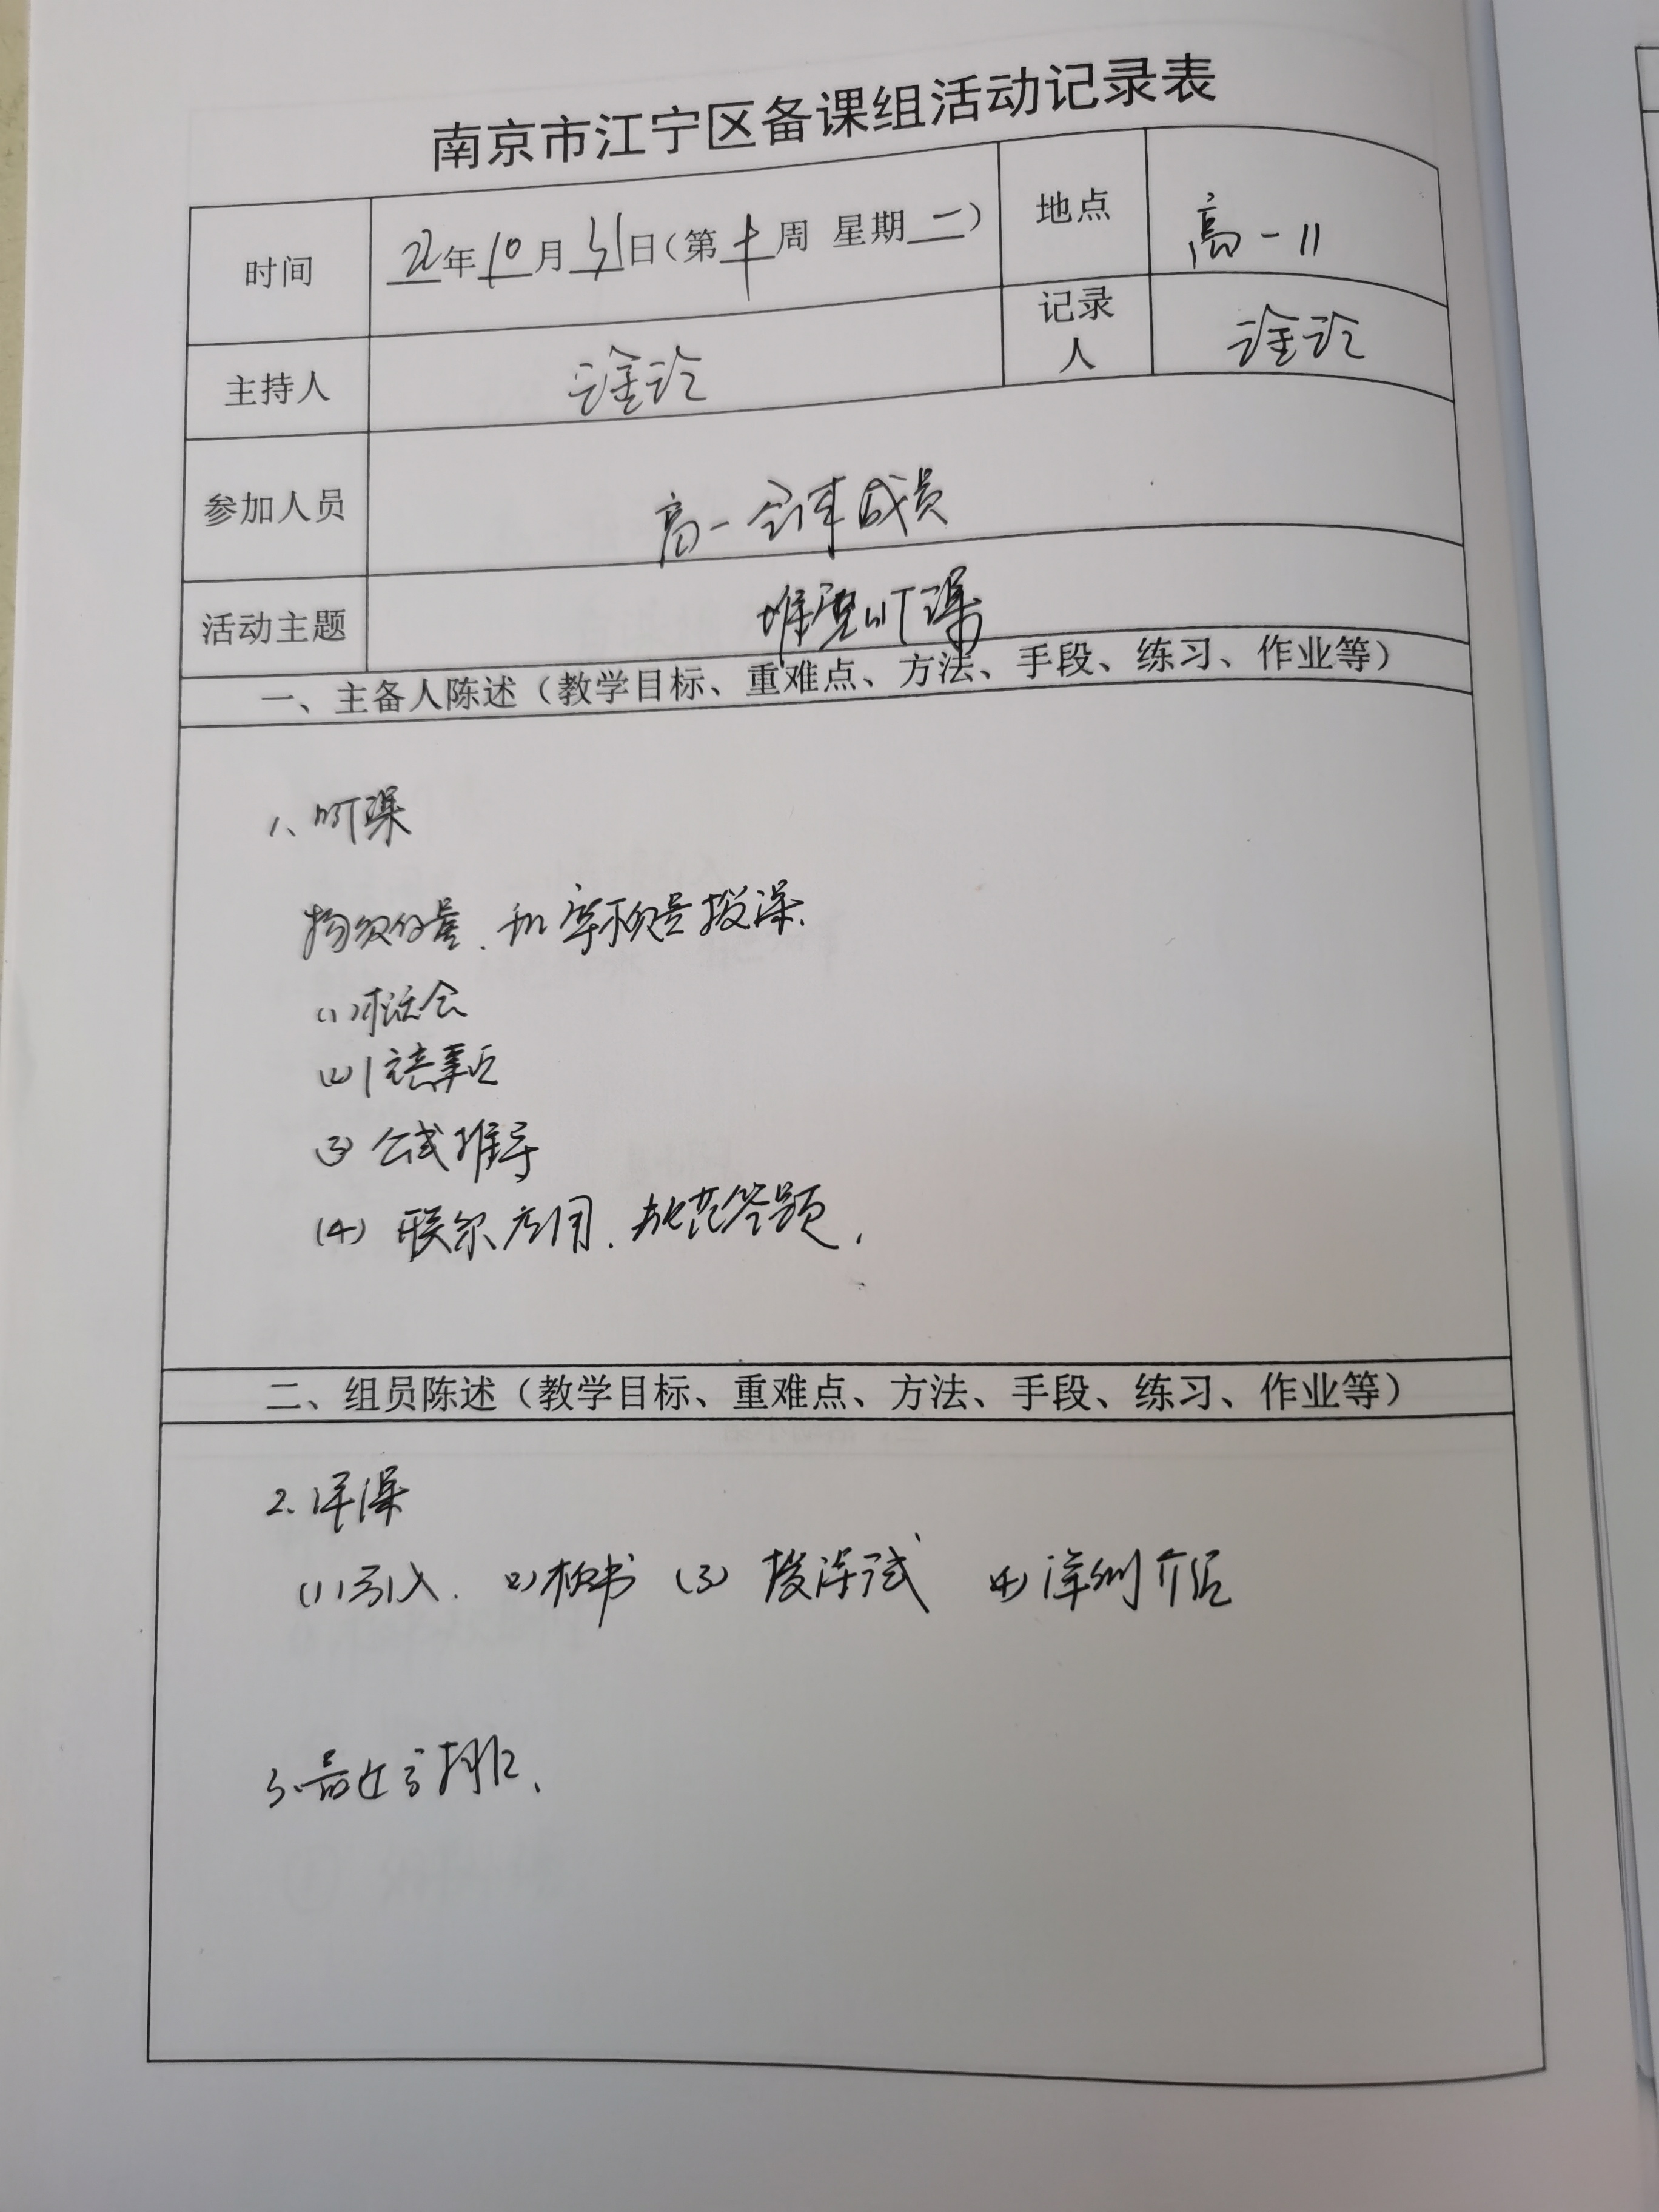 南京市江宁区备课组活动记录表
时间 22年10月31日(第十周 星期二) 地点 高一11
主持人 记录人
参加人员 高一全体成员
活动主题 听课
一、主备人陈述（教学目标、重难点、方法、手段、练习、作业等）
1、听课
物质的量、和 摩尔质量 授课.
(1) 概念
(2) 注意事项
(3) 公式推导
(4) 联系应用、规范答题.
二、组员陈述（教学目标、重难点、方法、手段、练习、作业等）
2. 评课
(1) 引入. (2) 板书 (3) 授课 (4) 详细介绍
3. 最近